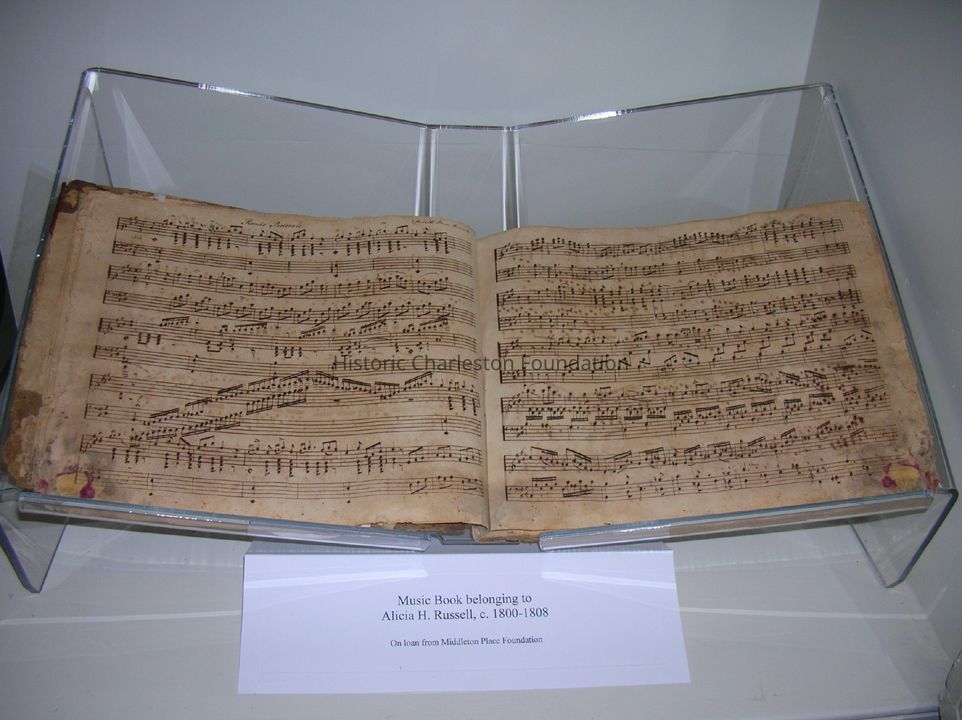 Rondo Pastorale
Historic Charleston Foundation
Music Book belonging to
Alicia H. Russell, c. 1800-1808
On loan from Middleton Place Foundation